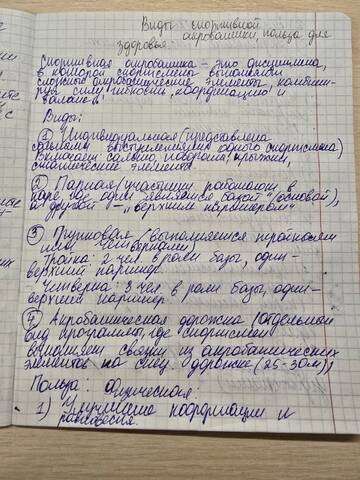 Виды спортивной
акробатики, польза для
здоровья.
Спортивная акробатика - это дисциплина,
в которой спортсмены выполняют
сложные акробатические элементы, комбини-
руя силу, гибкость, координацию и
баланс.
Виды:
① Индивидуальная (представлена
сольными выступлениями одного спортсмена)
Включает сальто, повороты, прыжки,
статические элементы
② Парная (участники работают в
паре, где один является базой" (основой),
а другой - „верхним партнером"
③ Групповая (выполняется тройками
или четверками)
Тройка: 2 чел. в роли базы, один-
верхний партнер.
Четверка: 3 чел. в роли базы, один-
верхний партнер.
④ Акробатическая дорожка (отдельный
вид программы, где спортсмен
выполняет связки из акробатических
элементов на спец. дорожке (25-30м))
Польза: физическая:
1) Улучшение координации и
равновесия.